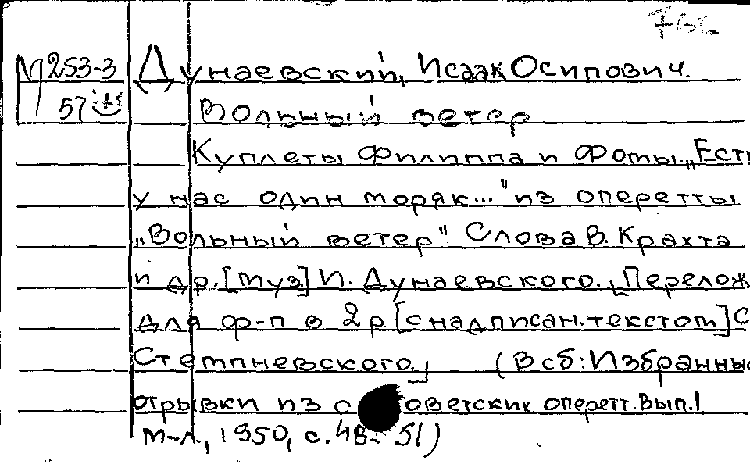 М253-3
57
Дунаевский, Исаак Осипович.
Вольный ветер
Куплеты Филиппа и Фомы „Есть
у нас один моряк..." из оперетты
„Вольный ветер" Слова В. Крахта
и др. [Муз] И. Дунаевского. [Перелож
для ф-п в 2 р [с надписан. текстом] С
Стемпневского.] (В сб: Избранные
отрывки из советских оперетт. Вып. 1
М-Л, 1950, с. 48-51)